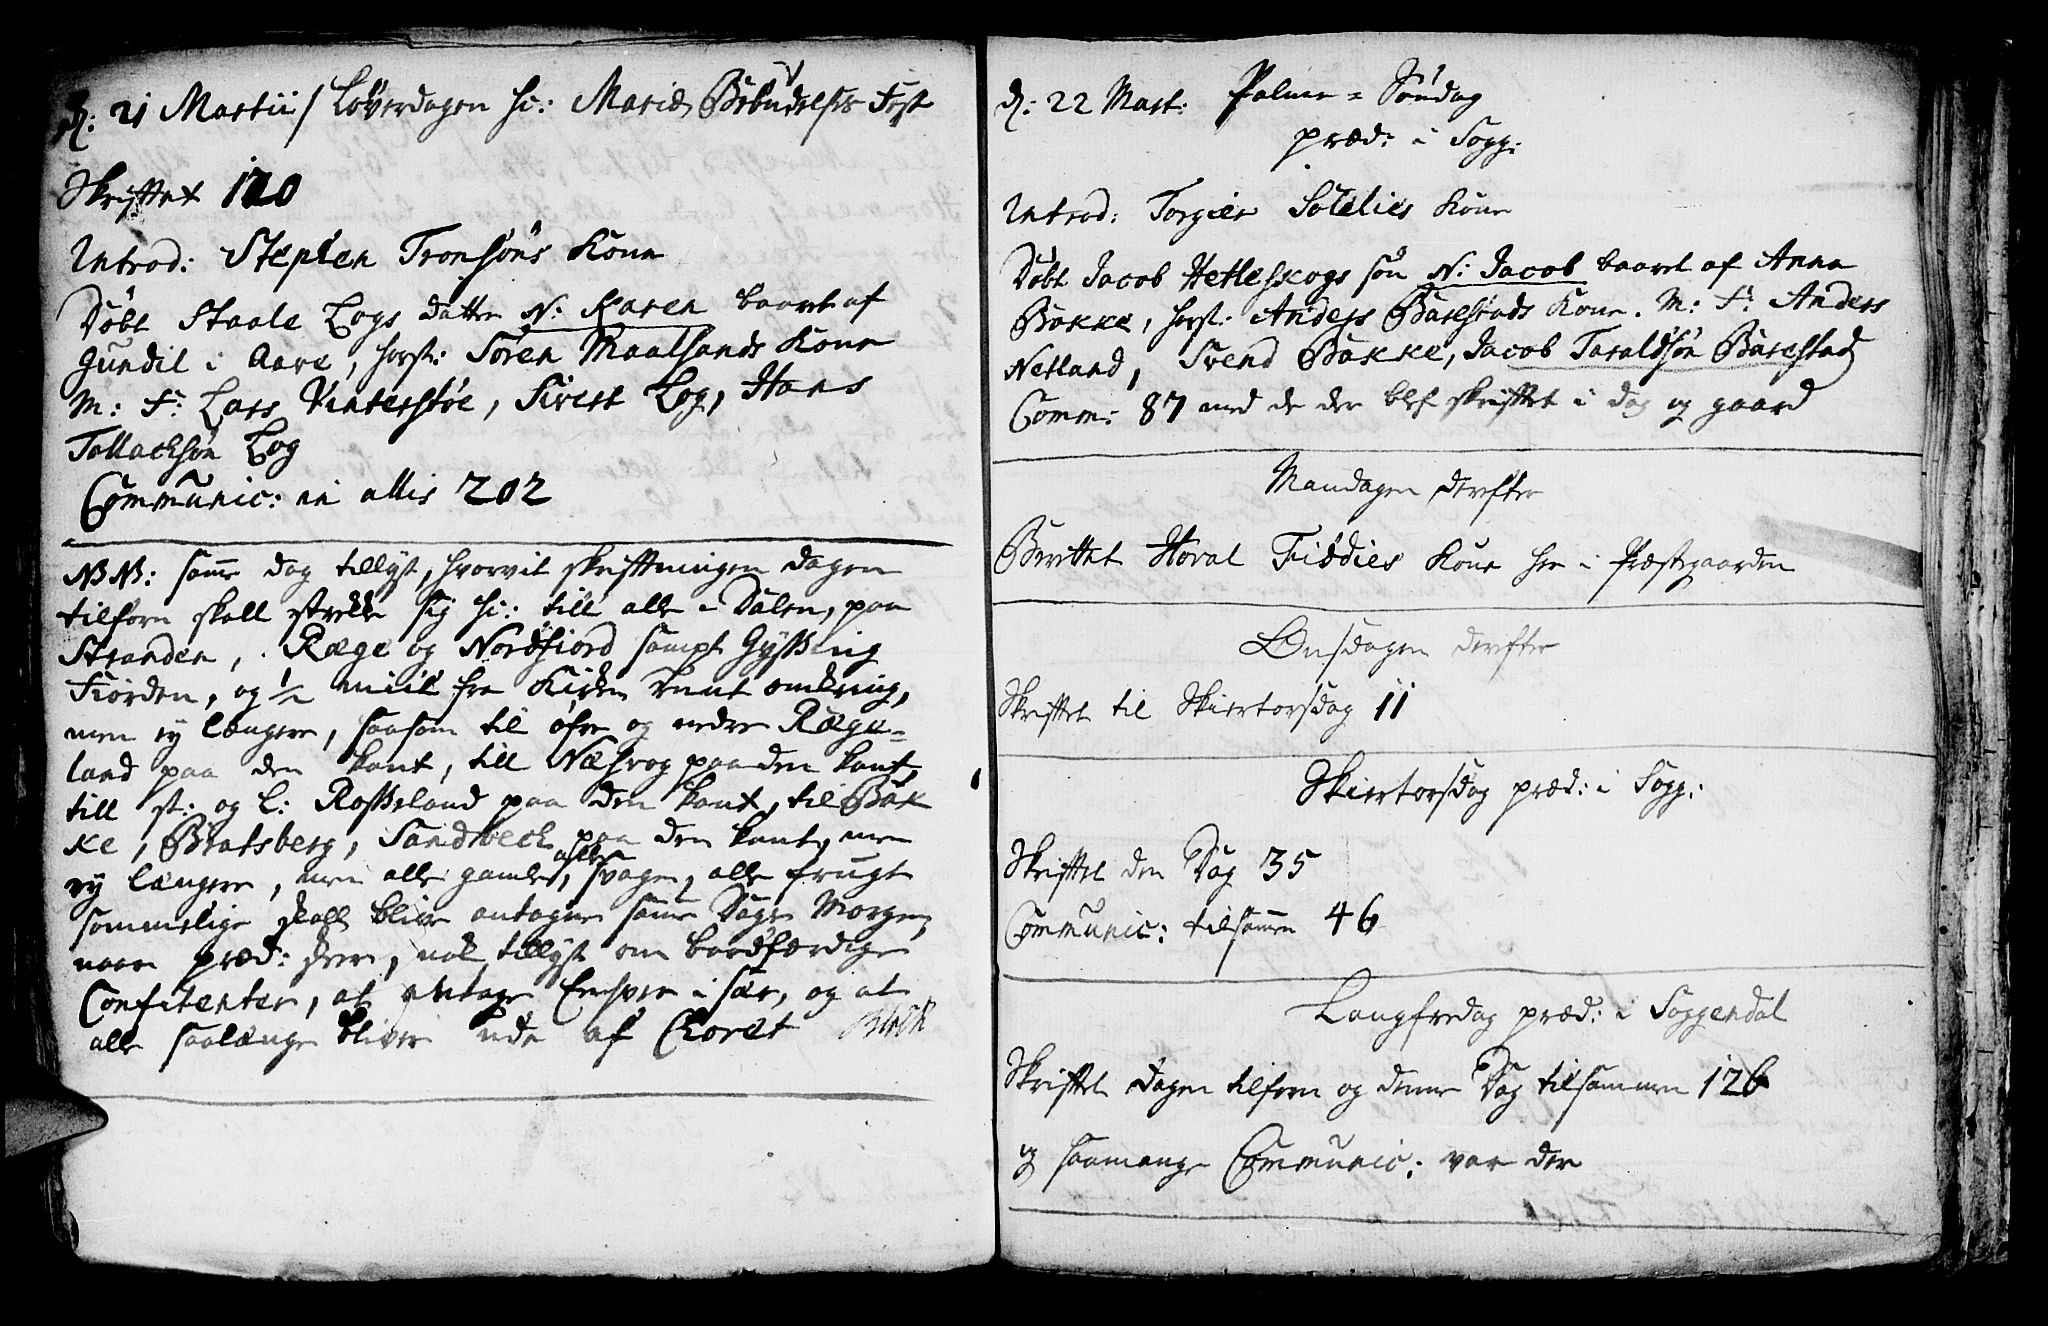 d: 21 Martii / Løverdagen hc: Mariæ Bebudelses Fest
Skriftet 120
Introd: Stephen Tronsøns Kone
Døbt Staale Logs datter N: Karen baaret af
Gundil i Aare, horst: Søren Maalsands Kone
M: F: Lars Vinterstøe, Sivert Log, Hans
Tollachsøn Log
Communic: in allis 202
NB NB: samme dag tillyst, hvorvit skriftningen dagen
tilforn skall strekke sig hc: till alle i Dalen, paa
Stranden, Ræge og Nordfiord sampt Gyssing
Fiorden, og 1/2 miil fra Kirken rundt omkring,
men ey længere, saasom til øfre og nedre Ræge=
land paa den kant, till Næsvog paa den kant,
till st: og l: Rosseland paa den kant, til Bak
ke, Bratsberg, Sandbech paa den kant, men
ey længere, men alle gamle, alle svage, alle frugt
sommelige skall blive antagne samme Dags Morgen,
naar præd: skeer, nok tillyst om bodfærdige
Confitenter, at antage Eensper i sær, og at
alle saalænge bliver ude af Choret
d: 22 Mart: Palme = Søndag
præd: i Sogg:
Introd: Torgier Solelies Kone
Døbt Jacob Hetleskogs søn N: Jacob baaret af Anna
Bakke, horst: Anders Barestads Kone. M: F: Anders
Netland, Svend Bakke, Jacob Taraldsøn Barestad
Comm: 87 med de der blef skriftet i dag og gaard
Mandagen derefter
Berettet Horal Fiddies Kone her i Præstegaarden
Onsdagen derefter
Skriftet til Skiertorsdag 11
Skiertorsdag præd: i Sogg:
Skriftet den Dag 35
Communic: tilsammen 46
Langfredag præd: i Soggendal
Skriftet dagen tilforn og denne Dag tilsammen 126
og saamange Communic: var der